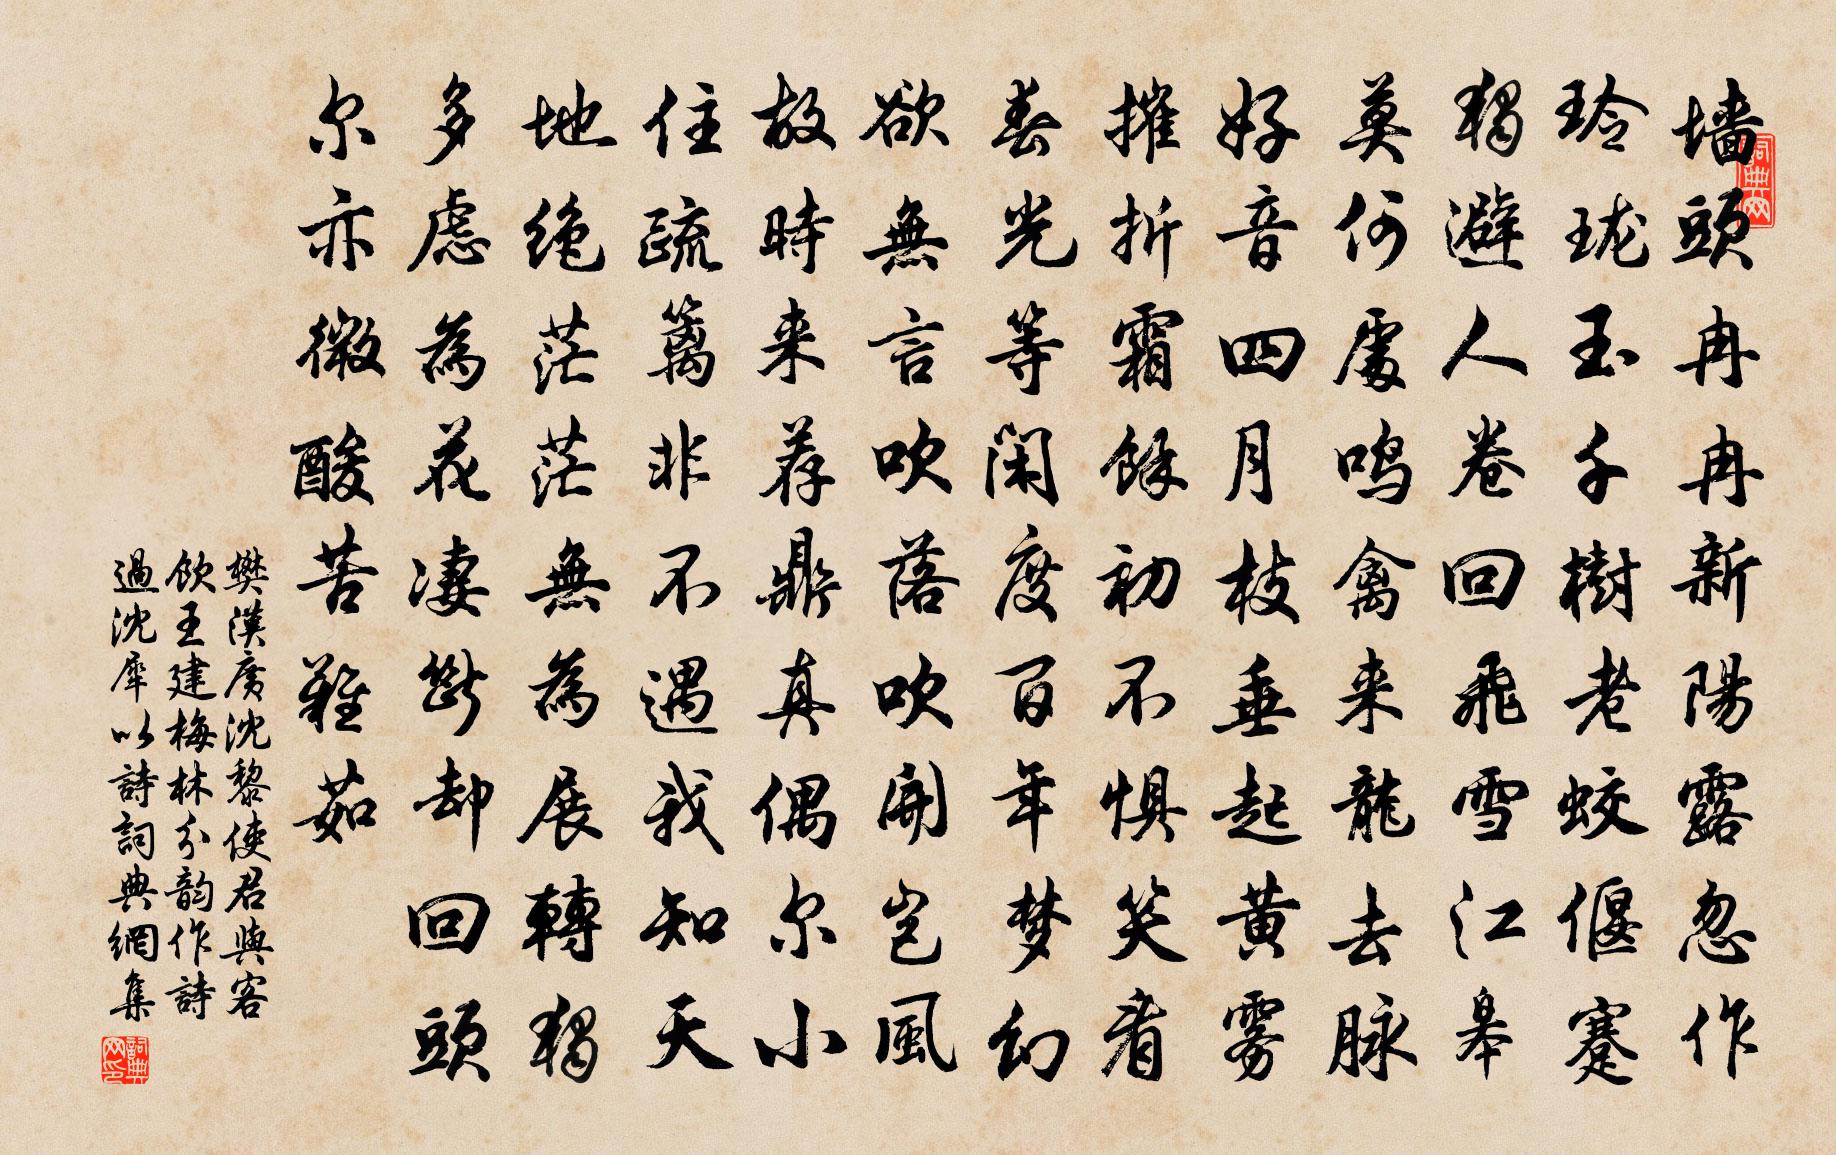 墙頭冉冉新陽露忽作
玲珑玉千樹老蛟偃蹇
獨避人卷回飛雪江皋
莫何處鸣禽来龍去脉
好音四月枝垂起黄雾
摧折霜餘初不惧笑看
春光等闲度百年梦幻
欲無言吹落吹開岂風
故時来荐鼎真偶尔小
住疏篱非不遇我知天
地绝茫茫無為展轉獨
多虑為花凄断却回頭
尔亦微酸苦難茹
樊漢廣沈黎使君與客
飲王建梅林分韵作詩
過沈犀以詩詞典網集
詞典网
詞典网印